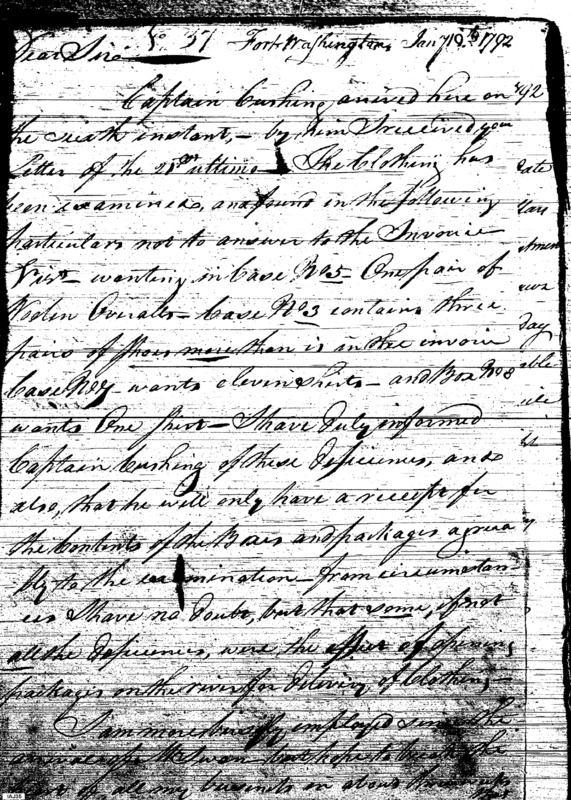 Dear Sir No. 37 Fort Washington, Jany 10th 1792
Captain Cushing arrived here on
the sixth instant,— by him I received your
Letter of the ultimo — The Clothing has
been examined, and found in the following
particulars not to answer to the Invoice
Vizt— wanting in Case No5 One pair of
Woolen Overalls— Case No3 contains three
pairs of Shoes more than is in the invoice
Case No7 wants eleven shirts— and Box No 8
wants One Shirt— I have duly informed
Captain Cushing of these deficiences, and
also, that he will only have a receipt for
the Contents of the Boxes and packages agreea
bly to the examination— from circumstan
ces I have no doubt, but that some, if not
all the deficiences, were the effect of opening
packages on the river for delivery of Clothing—
I am more busily employed since the
arrival of Mr Swan but hope to break the
heart of all my business in about three weeks